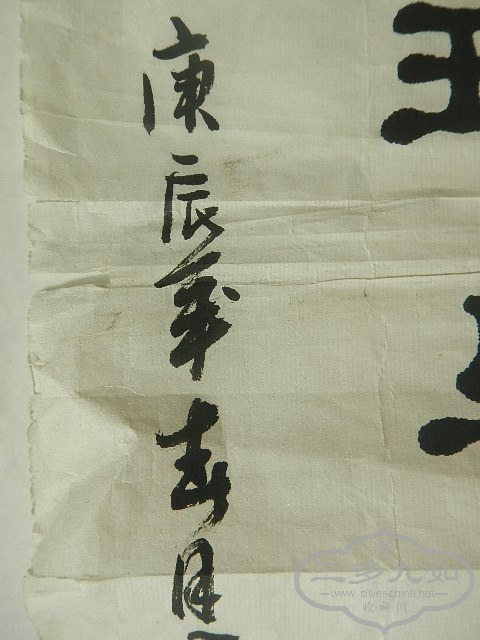 庚辰年春月
三多九如
www.silverchina.net
收藏网